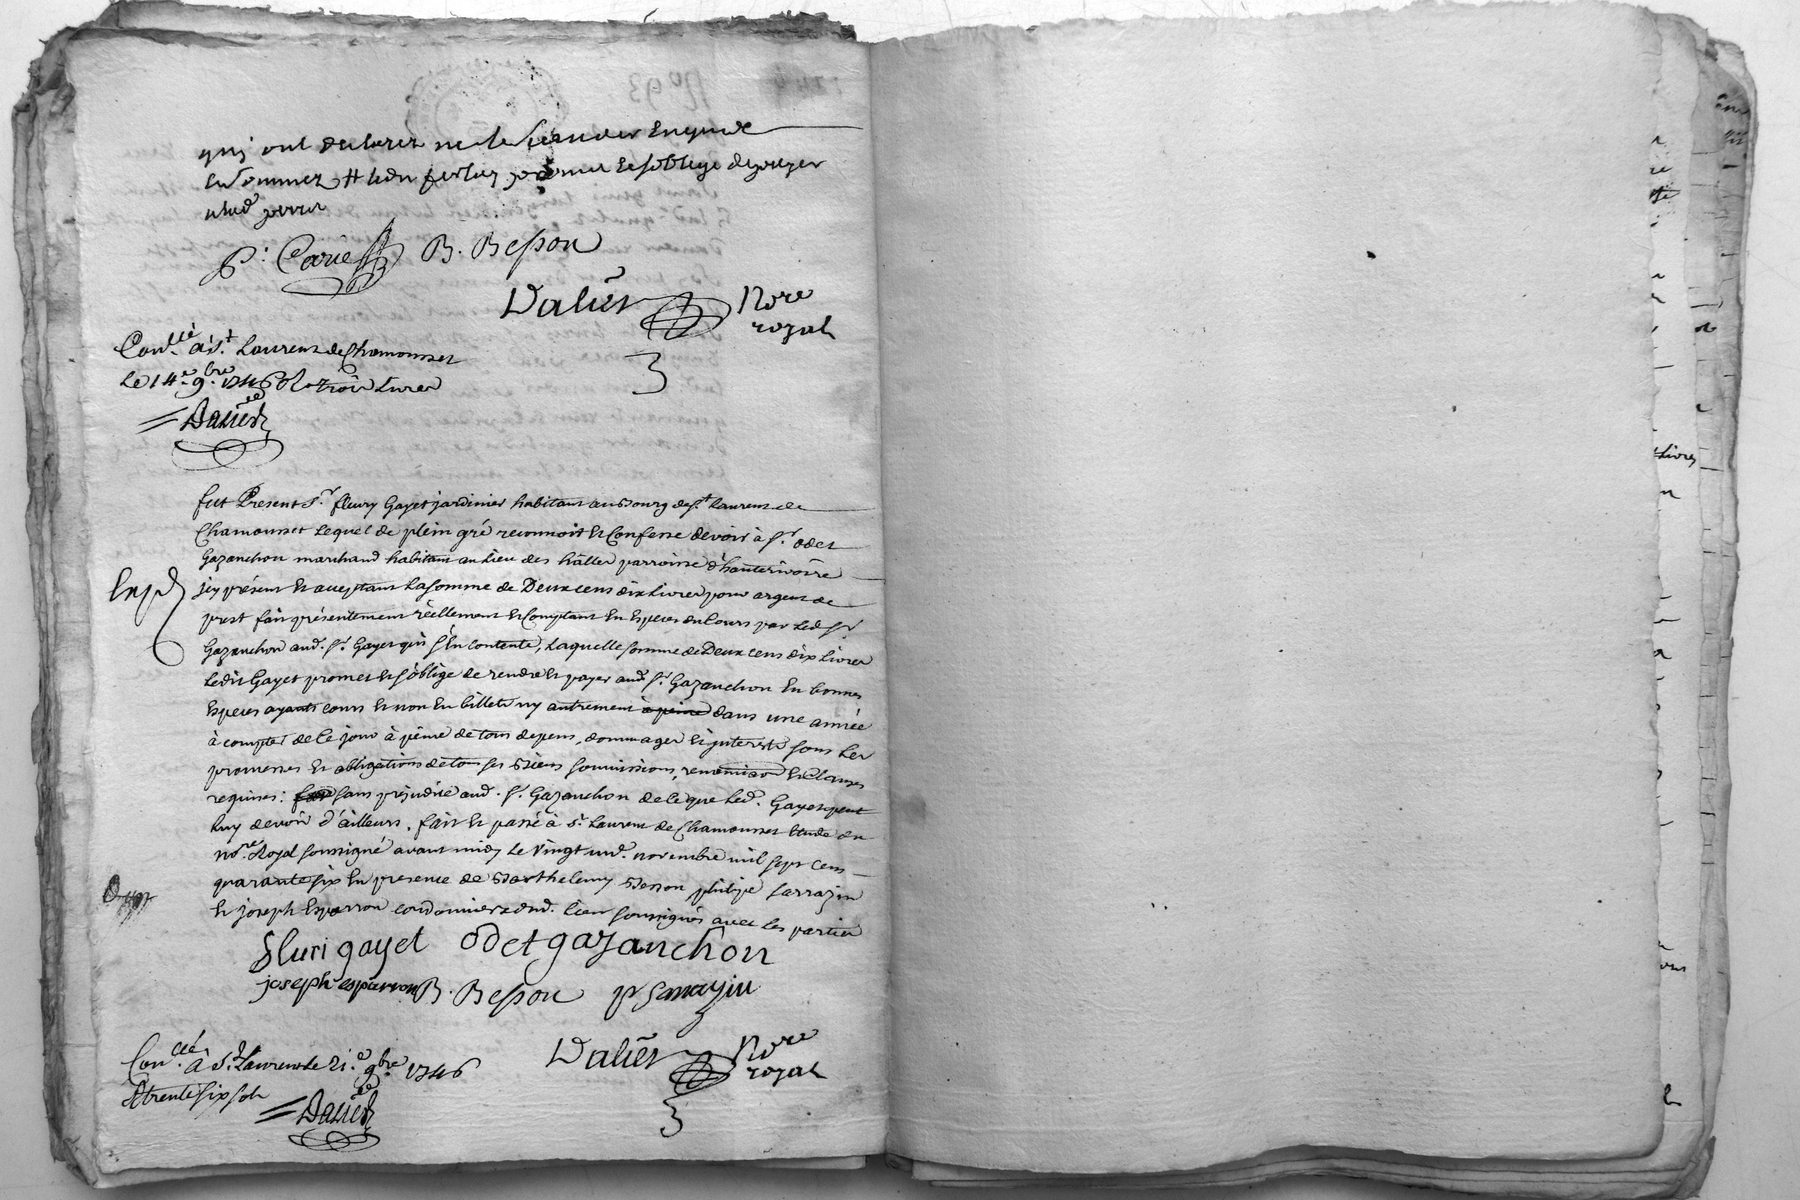 qui ont declarez ne le scavoir Enquis
P. Carie B. Besson
Daliés Nore
royal
Conllé à St. Laurent de Chamousset
Le 14e. 9bre 1746 R trois Livres
Daliés
fut Present Sr. fleury Gayet jardinier habitant au Bourg de St Laurent de
Chamousset Lequel de plein gré reconnoit et Confesse devoir à Sr. odet
Gazanchon marchand habitant au Lieu des hâlles parroisse d'hauterivoire
Exp
jcy présent et acceptant La somme de Deux cens dix Livres pour argent de
prest fait présentement réellement et Comptant En Especes du Cours par Led Sr.
Gazanchon aud. Sr. Gayet qui s'En contente, Laquelle somme de Deux cens dix Livres
Ledit Gayet promet et s'oblige de rendre et payer aud. Sr. Gazanchon En bonnes
Especes ayants cours et non En billets ny autrement à peine dans une année
à compter de Ce jour à peine de tous depens, dommages et interests sous Les
promesses et obligations de tous ses Biens soumissions, renonciaōn et Clauses
requises: sans préjudice aud. Sr. Gazanchon de Ce que Led. Gayet peut
Luy devoir d'ailleurs, fait et passé à St. Laurent de Chamousset Etude du
nore. Royal soussigné avant midy Le vingt und. novembre mil sept cens
quarante six En presence de Barthelemy Besson philipe sarrazin
et joseph Esparron cordonniers dud. Lieu soussignés avec Les parties
fluri gayet odet gazanchon
joseph esparron B. Besson p sarrazin
Daliés Nore
royal
Conllé. à St. Laurent Le 21e. 9bre. 1746
R trente six sols
Daliés